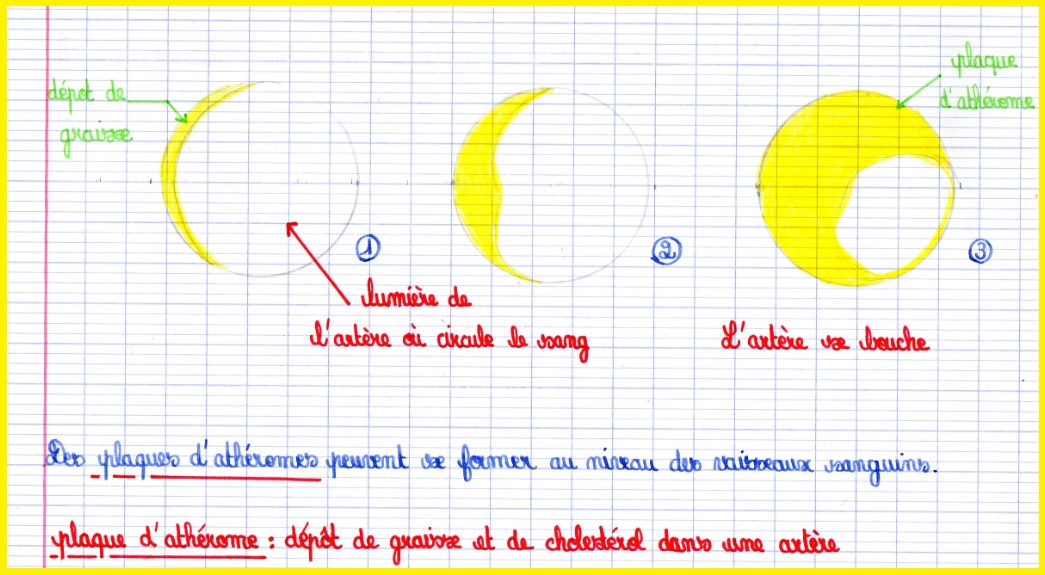 dépot de
graisse
plaque
d'athérome
1
2
3
lumière de
l'artère où circule le sang
L'artère se bouche
Des plaques d'athéromes peuvent se former au niveau des vaisseaux sanguins.
plaque d'athérome : dépôt de graisse et de cholestérol dans une artère